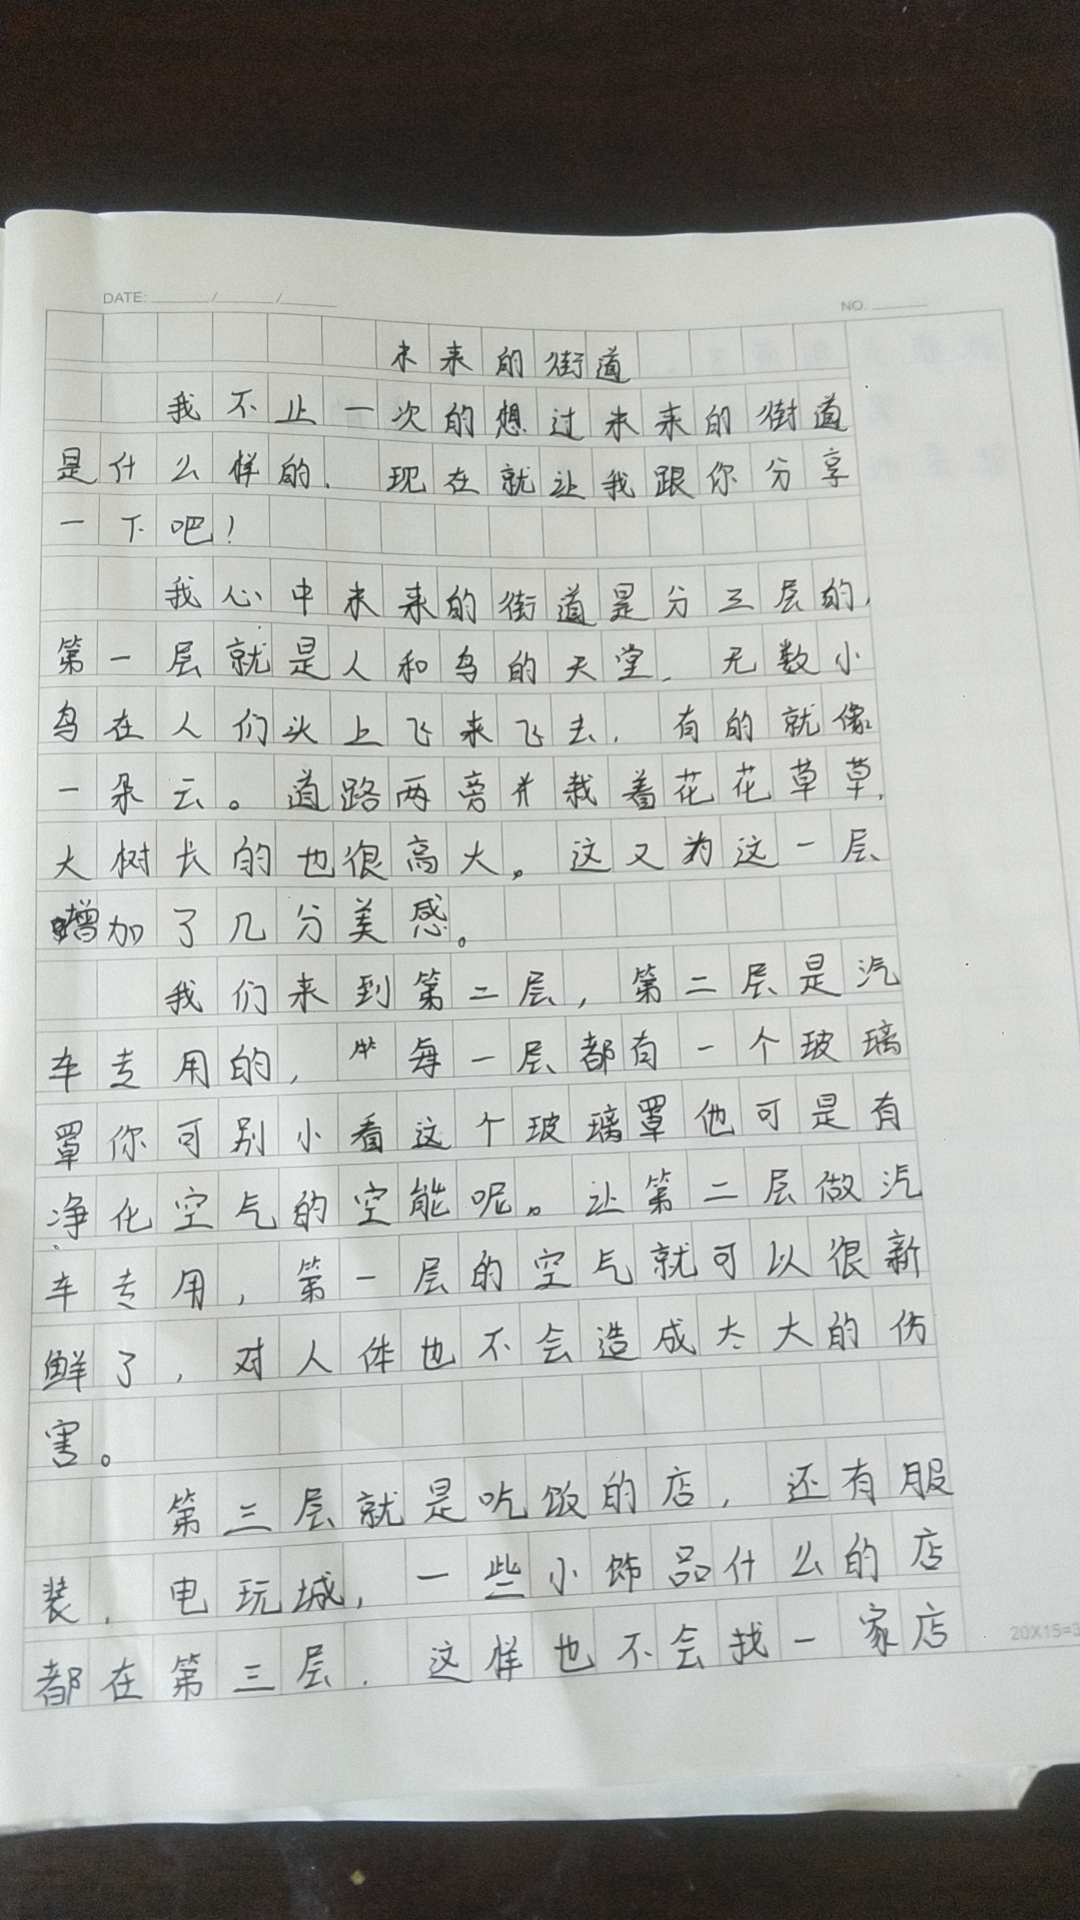 DATE: / /
NO.
未来的街道
我不止一次的想过未来的街道
是什么样的.现在就让我跟你分享
一下吧!
我心中未来的街道是分三层的,
第一层就是人和鸟的天堂.无数小
鸟在人们头上飞来飞去.有的就像
一朵云。道路两旁栽着花花草草.
大树长的也很高大。这又为这一层
增加了几分美感。
我们来到第二层,第二层是汽
车专用的,每一层都有一个玻璃
罩你可别小看这个玻璃罩他可是有
净化空气的空能呢。让第二层做汽
车专用,第一层的空气就可以很新
鲜了,对人体也不会造成太大的伤
害。
第三层就是吃饭的店,还有服
装.电玩城,一些小饰品什么的店
都在第三层.这样也不会找一家店
20X15=3